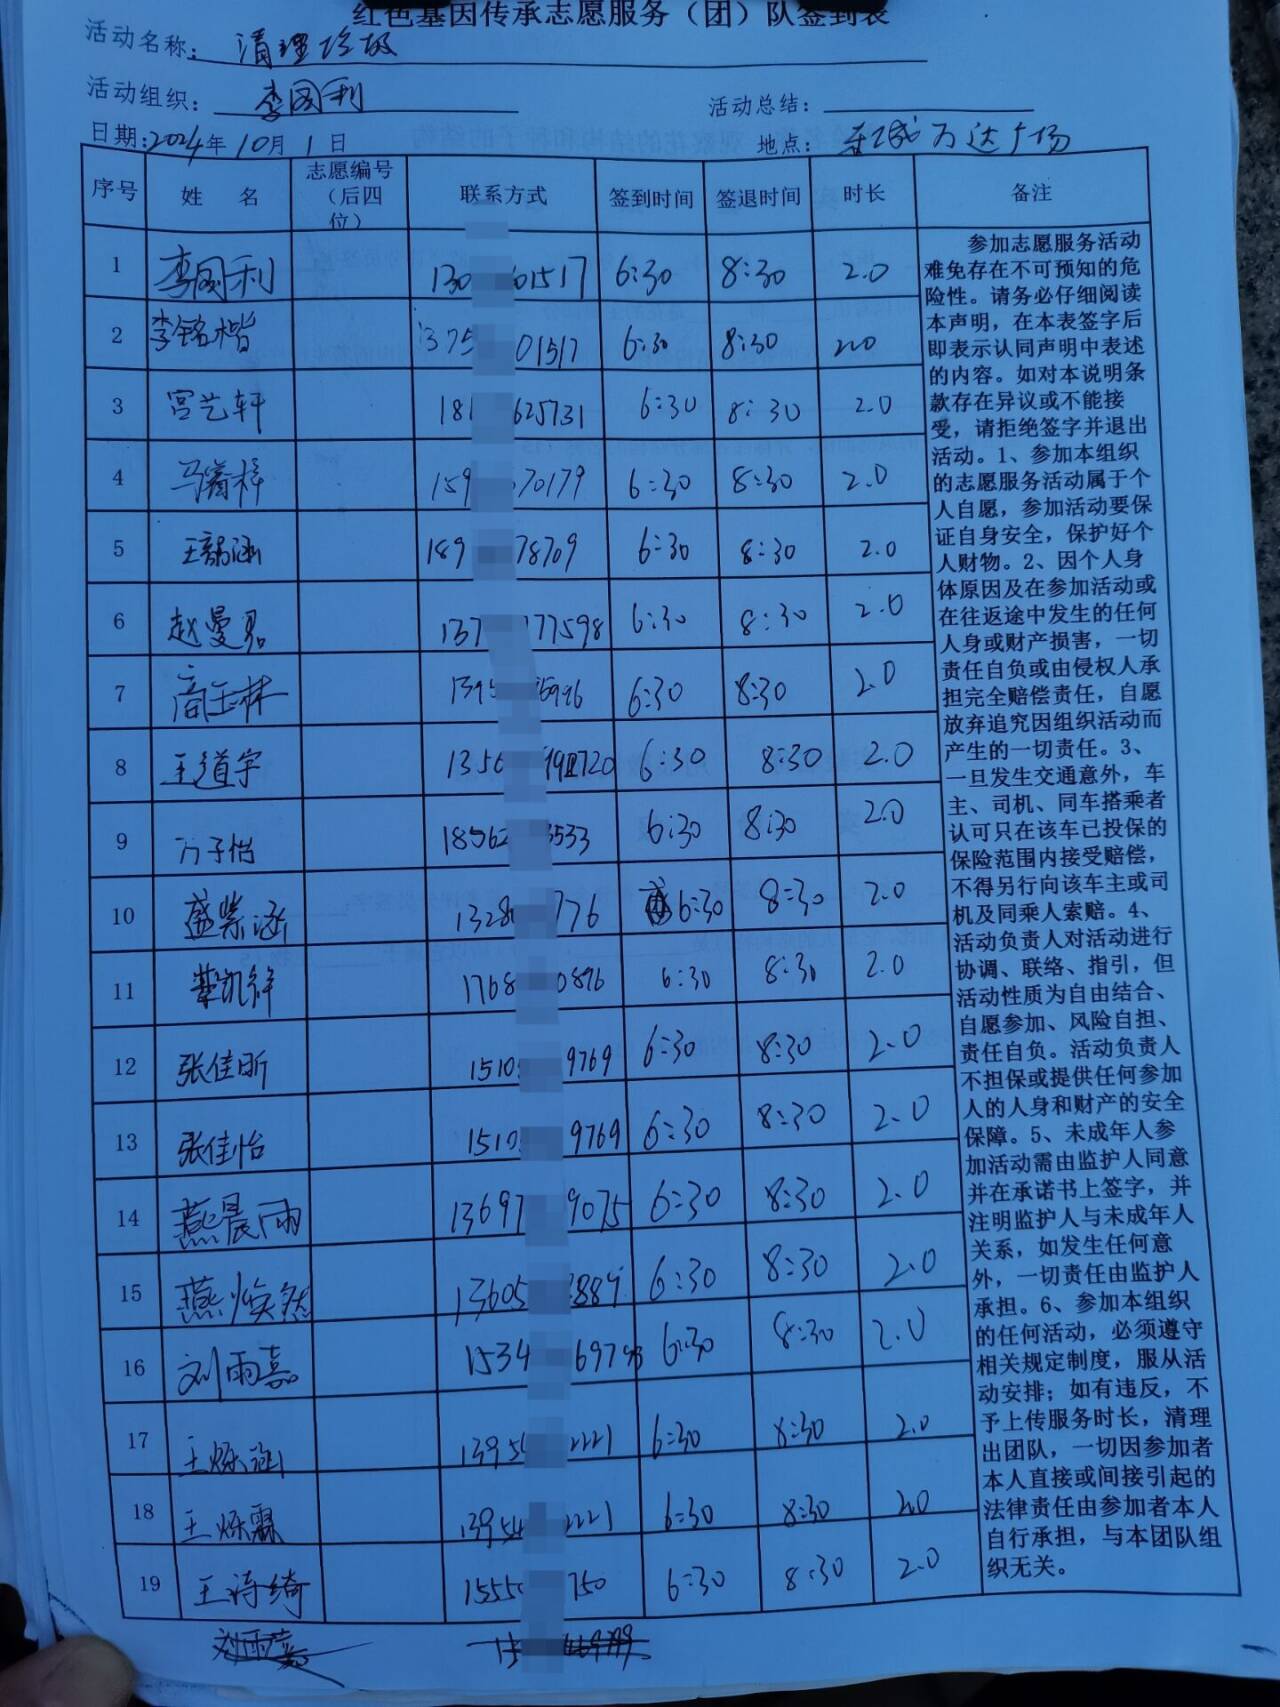 红色基因传承志愿服务（团）队签到表
活动名称：清理垃圾
活动组织：李国利 活动总结：
日期：2024年10月1日 地点：东城万达广场
序号 姓 名 志愿编号（后四位） 联系方式 签到时间 签退时间 时长 备注
1 李国利 130 01517 6:30 8:30 2.0
2 李铭楷 1375 01517 6:30 8:30 2.0
3 宫艺轩 181 625731 6:30 8:30 2.0
4 马 梓 159 70179 6:30 8:30 2.0
5 王 涵 189 78709 6:30 8:30 2.0
6 赵曼君 137 77598 6:30 8:30 2.0
7 商玉林 1395 6996 6:30 8:30 2.0
8 王道宇 1356 720 6:30 8:30 2.0
9 万子怡 18562 3533 6:30 8:30 2.0
10 盛紫涵 1328 776 6:30 8:30 2.0
11 凯祥 1768 0896 6:30 8:30 2.0
12 张佳昕 1510 9769 6:30 8:30 2.0
13 张佳怡 1510 9769 6:30 8:30 2.0
14 燕晨雨 13697 9075 6:30 8:30 2.0
15 燕焕然 13605 889 6:30 8:30 2.0
16 刘雨嘉 1534 697 6:30 8:30 2.0
17 王烁涵 1395 2221 6:30 8:30 2.0
18 王烁霖 13954 2221 6:30 8:30 2.0
19 王诗绮 1555 750 6:30 8:30 2.0
刘雨嘉
参加志愿服务活动
难免存在不可预知的危
险性。请务必仔细阅读
本声明，在本表签字后
即表示认同声明中表述
的内容。如对本说明条
款存在异议或不能接
受，请拒绝签字并退出
活动。1、参加本组织
的志愿服务活动属于个
人自愿，参加活动要保
证自身安全，保护好个
人财物。2、因个人身
体原因及在参加活动或
在往返途中发生的任何
人身或财产损害，一切
责任自负或由侵权人承
担完全赔偿责任，自愿
放弃追究因组织活动而
产生的一切责任。3、
一旦发生交通意外，车
主、司机、同车搭乘者
认可只在该车已投保的
保险范围内接受赔偿，
不得另行向该车主或司
机及同乘人索赔。4、
活动负责人对活动进行
协调、联络、指引，但
活动性质为自由结合、
自愿参加、风险自担、
责任自负。活动负责人
不担保或提供任何参加
人的人身和财产的安全
保障。5、未成年人参
加活动需由监护人同意
并在承诺书上签字，并
注明监护人与未成年人
关系，如发生任何意
外，一切责任由监护人
承担。6、参加本组织
的任何活动，必须遵守
相关规定制度，服从活
动安排；如有违反，不
予上传服务时长，清理
出团队，一切因参加者
本人直接或间接引起的
法律责任由参加者本人
自行承担，与本团队组
织无关。